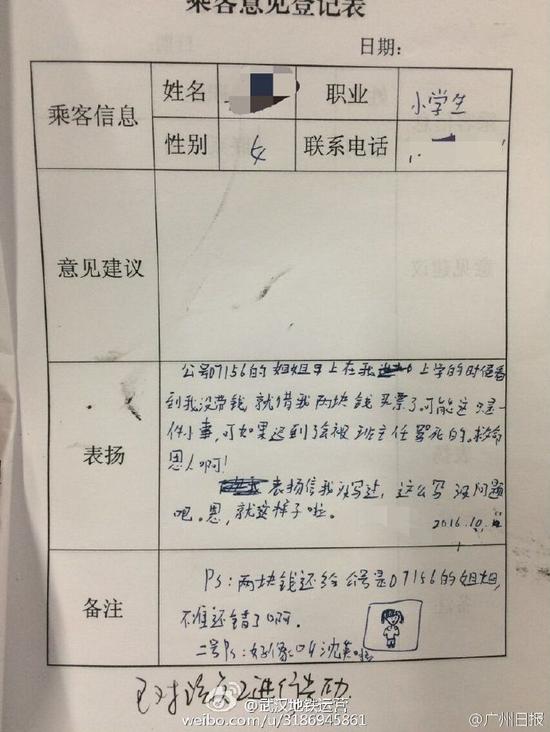 乘客意见登记表
日期:
乘客信息
姓名
职业
小学生
性别
女
联系电话
意见建议
表扬
公号07156的姐姐早上在我上学的时候看
到我没带钱,就借我两块钱买票了.可能这只是一
件小事,可如果迟到了会被班主任骂死的.救命
恩人啊!
表扬信我没写过,这么写没问题
吧。恩,就这样子啦。
2016.10.
备注
PS:两块钱还给公号是07156的姐姐,
不准还错了啊。
二号PS:好像叫沈英
已对该员工进行
@武汉地铁运营
weibo.com/u/3186945861
@广州日报